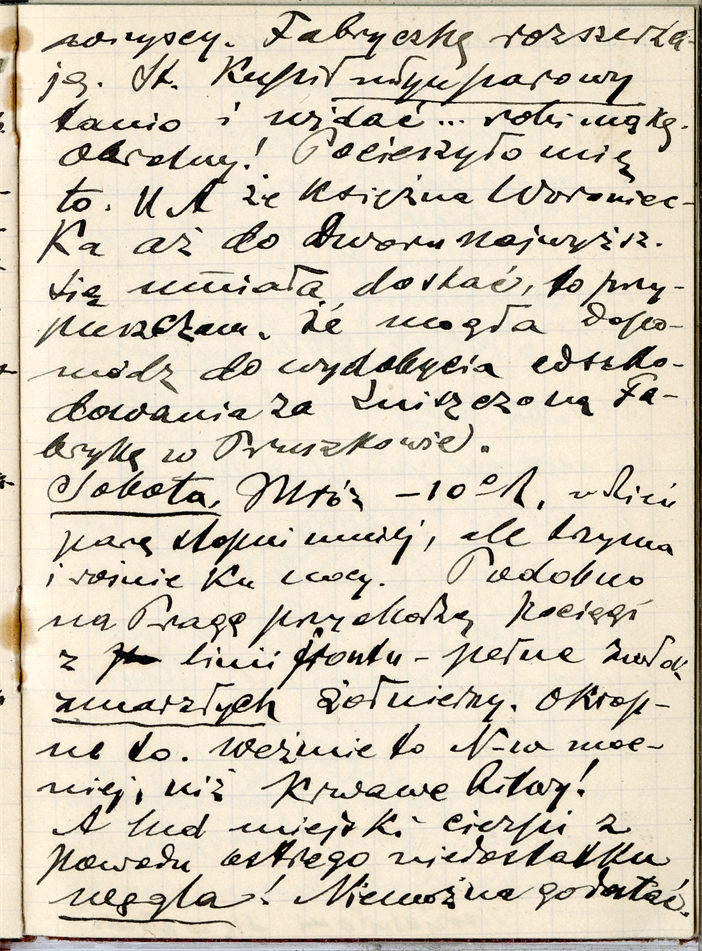 wszyscy. Fabryczkę rozszerza-
ją. St. Kupił młyn parowy
tanio i widać... robi mąkę.
Obrotny! Pocieszyło mię
to. A że Księżna Woroniec-
Ka aż do dworu najwyższ.
się umiała dostać, to przy-
puszczam, że mogła dopo-
módz do wydobycia odszko-
dowania za zniszczoną Fa-
brykę w Pruszkowie).
Sobota. Mróz -10° R. w dzień
parę stopni mniej, ale trzyma
i rośnie Ku nocy. Podobno
na Pragę przychodzą pociągi
z linii frontu - pełne zwłok
zmarzłych żołnierzy. Okrop-
ne to. Weźmie to N-w moc-
niej, niż Krwawe bitwy!
A lud miejski cierpi z
powodu ostrego niedostatku
węgla! Niemożna go dostać.